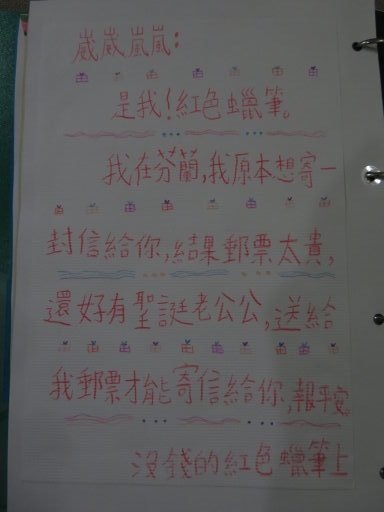 崴崴嵐嵐：
是我！紅色蠟筆。
我在芬蘭，我原本想寄一
封信給你，結果郵票太貴，
還好有聖誕老公公，送給
我郵票才能寄信給你，報平安。
沒錢的紅色蠟筆上